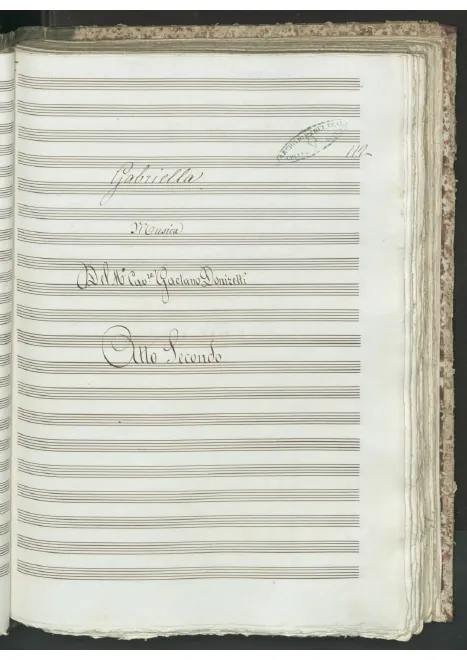 112
Gabriella
Musica
Del Mº Cavre Gaetano Donizetti
Atto Secondo